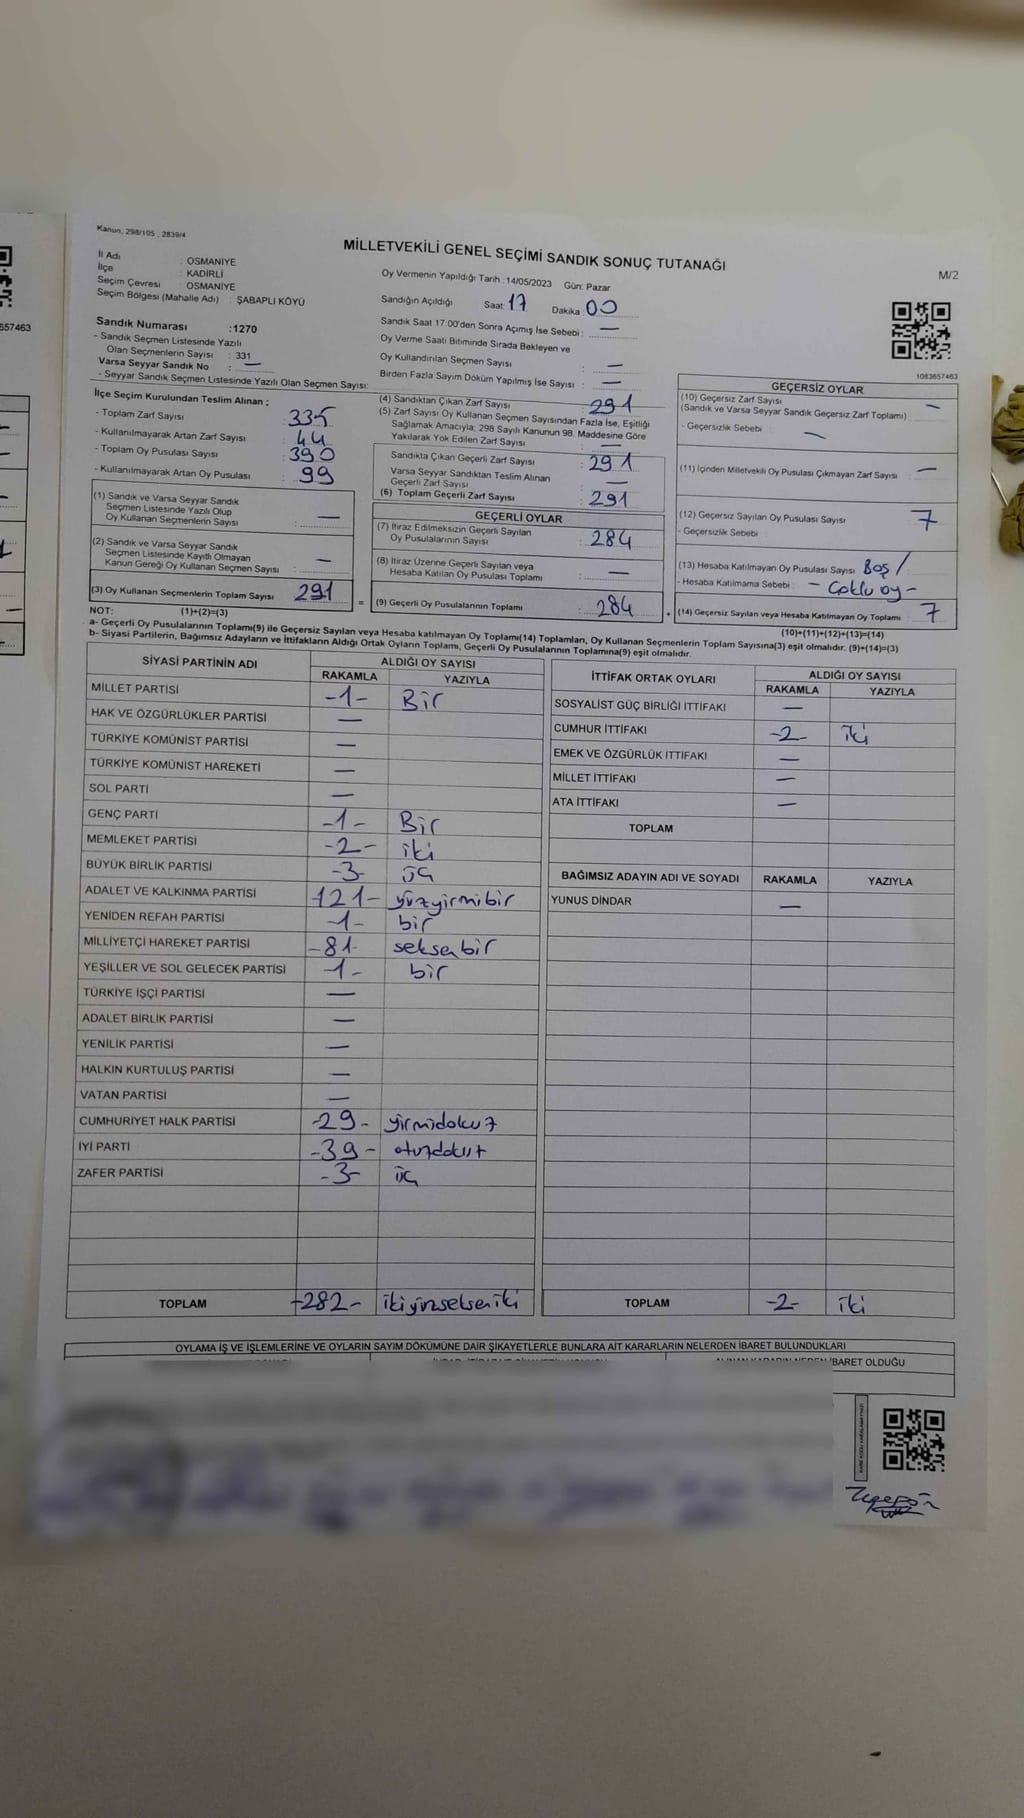 Kanun, 298/105 , 2839/4
MİLLETVEKİLİ GENEL SEÇİMİ SANDIK SONUÇ TUTANAĞI
M/2
İl Adı : OSMANİYE
İlçe : KADİRLİ
Seçim Çevresi OSMANİYE
Seçim Bölgesi (Mahalle Adı) : ŞABAPLI KÖYÜ
Oy Vermenin Yapıldığı Tarih : 14/05/2023 Gün: Pazar
Sandığın Açıldığı Saat: 17 Dakika: 00
Sandık Saat 17:00'den Sonra Açımış İse Sebebi : —
Oy Verme Saati Bitiminde Sırada Bekleyen ve
Oy Kullandırılan Seçmen Sayısı : —
Birden Fazla Sayım Döküm Yapılmış İse Sayısı : —
Sandık Numarası :1270
- Sandık Seçmen Listesinde Yazılı
Olan Seçmenlerin Sayısı : 331
Varsa Seyyar Sandık No : —
- Seyyar Sandık Seçmen Listesinde Yazılı Olan Seçmen Sayısı:
557463
1083657463
İlçe Seçim Kurulundan Teslim Alınan :
- Toplam Zarf Sayısı : 335
- Kullanılmayarak Artan Zarf Sayısı : 44
- Toplam Oy Pusulası Sayısı : 390
- Kullanılmayarak Artan Oy Pusulası : 99
(1) Sandık ve Varsa Seyyar Sandık
Seçmen Listesinde Yazılı Olup
Oy Kullanan Seçmenlerin Sayısı : —
(2) Sandık ve Varsa Seyyar Sandık
Seçmen Listesinde Kayıtlı Olmayan
Kanun Gereği Oy Kullanan Seçmen Sayısı : —
(3) Oy Kullanan Seçmenlerin Toplam Sayısı 291
NOT: (1)+(2)=(3)
(4) Sandıktan Çıkan Zarf Sayısı : 291
(5) Zarf Sayısı Oy Kullanan Seçmen Sayısından Fazla İse, Eşitliği
Sağlamak Amacıyla; 298 Sayılı Kanunun 98. Maddesine Göre
Yakılarak Yok Edilen Zarf Sayısı : —
Sandıkta Çıkan Geçerli Zarf Sayısı : 291
Varsa Seyyar Sandıktan Teslim Alınan
Geçerli Zarf Sayısı : —
(6) Toplam Geçerli Zarf Sayısı : 291
GEÇERLİ OYLAR
(7) İtiraz Edilmeksizin Geçerli Sayılan
Oy Pusulalarının Sayısı : 284
(8) İtiraz Üzerine Geçerli Sayılan veya
Hesaba Katılan Oy Pusulası Toplamı : —
= (9) Geçerli Oy Pusulalarının Toplamı : 284
GEÇERSİZ OYLAR
(10) Geçersiz Zarf Sayısı —
(Sandık ve Varsa Seyyar Sandık Geçersiz Zarf Toplamı)
- Geçersizlik Sebebi : —
(11) İçinden Milletvekili Oy Pusulası Çıkmayan Zarf Sayısı : —
(12) Geçersiz Sayılan Oy Pusulası Sayısı : 7
- Geçersizlik Sebebi :
(13) Hesaba Katılmayan Oy Pusulası Sayısı : Boş /
- Hesaba Katılmama Sebebi : - Çoklu oy -
+ (14) Geçersiz Sayılan veya Hesaba Katılmayan Oy Toplamı : 7
(10)+(11)+(12)+(13)=(14)
a- Geçerli Oy Pusulalarının Toplamı(9) ile Geçersiz Sayılan veya Hesaba katılmayan Oy Toplamı(14) Toplamları, Oy Kullanan Seçmenlerin Toplam Sayısına(3) eşit olmalıdır. (9)+(14)=(3)
b- Siyasi Partilerin, Bağımsız Adayların ve İttifakların Aldığı Ortak Oyların Toplamı, Geçerli Oy Pusulalarının Toplamına(9) eşit olmalıdır.
SİYASİ PARTİNİN ADI ALDIĞI OY SAYISI
RAKAMLA YAZIYLA
MİLLET PARTİSİ -1- Bir
HAK VE ÖZGÜRLÜKLER PARTİSİ —
TÜRKİYE KOMÜNİST PARTİSİ —
TÜRKİYE KOMÜNİST HAREKETİ —
SOL PARTİ —
GENÇ PARTİ -1- Bir
MEMLEKET PARTİSİ -2- iki
BÜYÜK BİRLİK PARTİSİ -3- üç
ADALET VE KALKINMA PARTİSİ 121- yüzyirmibir
YENİDEN REFAH PARTİSİ -1- bir
MİLLİYETÇİ HAREKET PARTİSİ -81- seksenbir
YEŞİLLER VE SOL GELECEK PARTİSİ -1- bir
TÜRKİYE İŞÇİ PARTİSİ —
ADALET BİRLİK PARTİSİ —
YENİLİK PARTİSİ —
HALKIN KURTULUŞ PARTİSİ —
VATAN PARTİSİ —
CUMHURİYET HALK PARTİSİ -29- yirmidokuz
İYİ PARTİ -39- otuzdokuz
ZAFER PARTİSİ -3- üç
TOPLAM -282- ikiyüzsekseniki
İTTİFAK ORTAK OYLARI ALDIĞI OY SAYISI
RAKAMLA YAZIYLA
SOSYALİST GÜÇ BİRLİĞİ İTTİFAKI —
CUMHUR İTTİFAKI -2- iki
EMEK VE ÖZGÜRLÜK İTTİFAKI —
MİLLET İTTİFAKI —
ATA İTTİFAKI —
TOPLAM
BAĞIMSIZ ADAYIN ADI VE SOYADI RAKAMLA YAZIYLA
YUNUS DİNDAR —
TOPLAM -2- iki
OYLAMA İŞ VE İŞLEMLERİNE VE OYLARIN SAYIM DÖKÜMÜNE DAİR ŞİKAYETLERLE BUNLARA AİT KARARLARIN NELERDEN İBARET BULUNDUKLARI
İBARET OLDUĞU